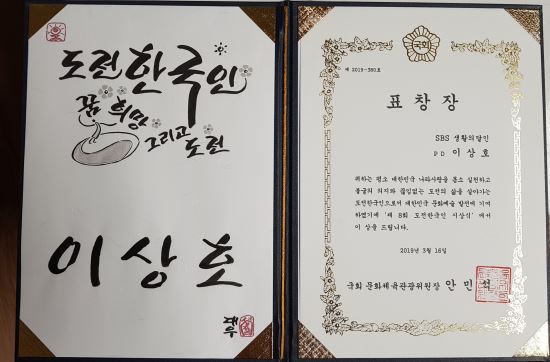 도전한국인
꿈 희망
그리고
도전
이상호
국회
제 2019-380호
표창장
SBS 생활의달인
PD 이상호
귀하는 평소 대한민국 나라사랑을 몸소 실천하고
불굴의 의지와 끊임없는 도전의 삶을 살아가는
도전한국인으로서 대한민국 문화예술 발전에 기여
하였기에 '제 8회 도전한국인 시상식' 에서
이 상을 드립니다.
2019년 3월 16일
국회 문화체육관광위원장 안민석